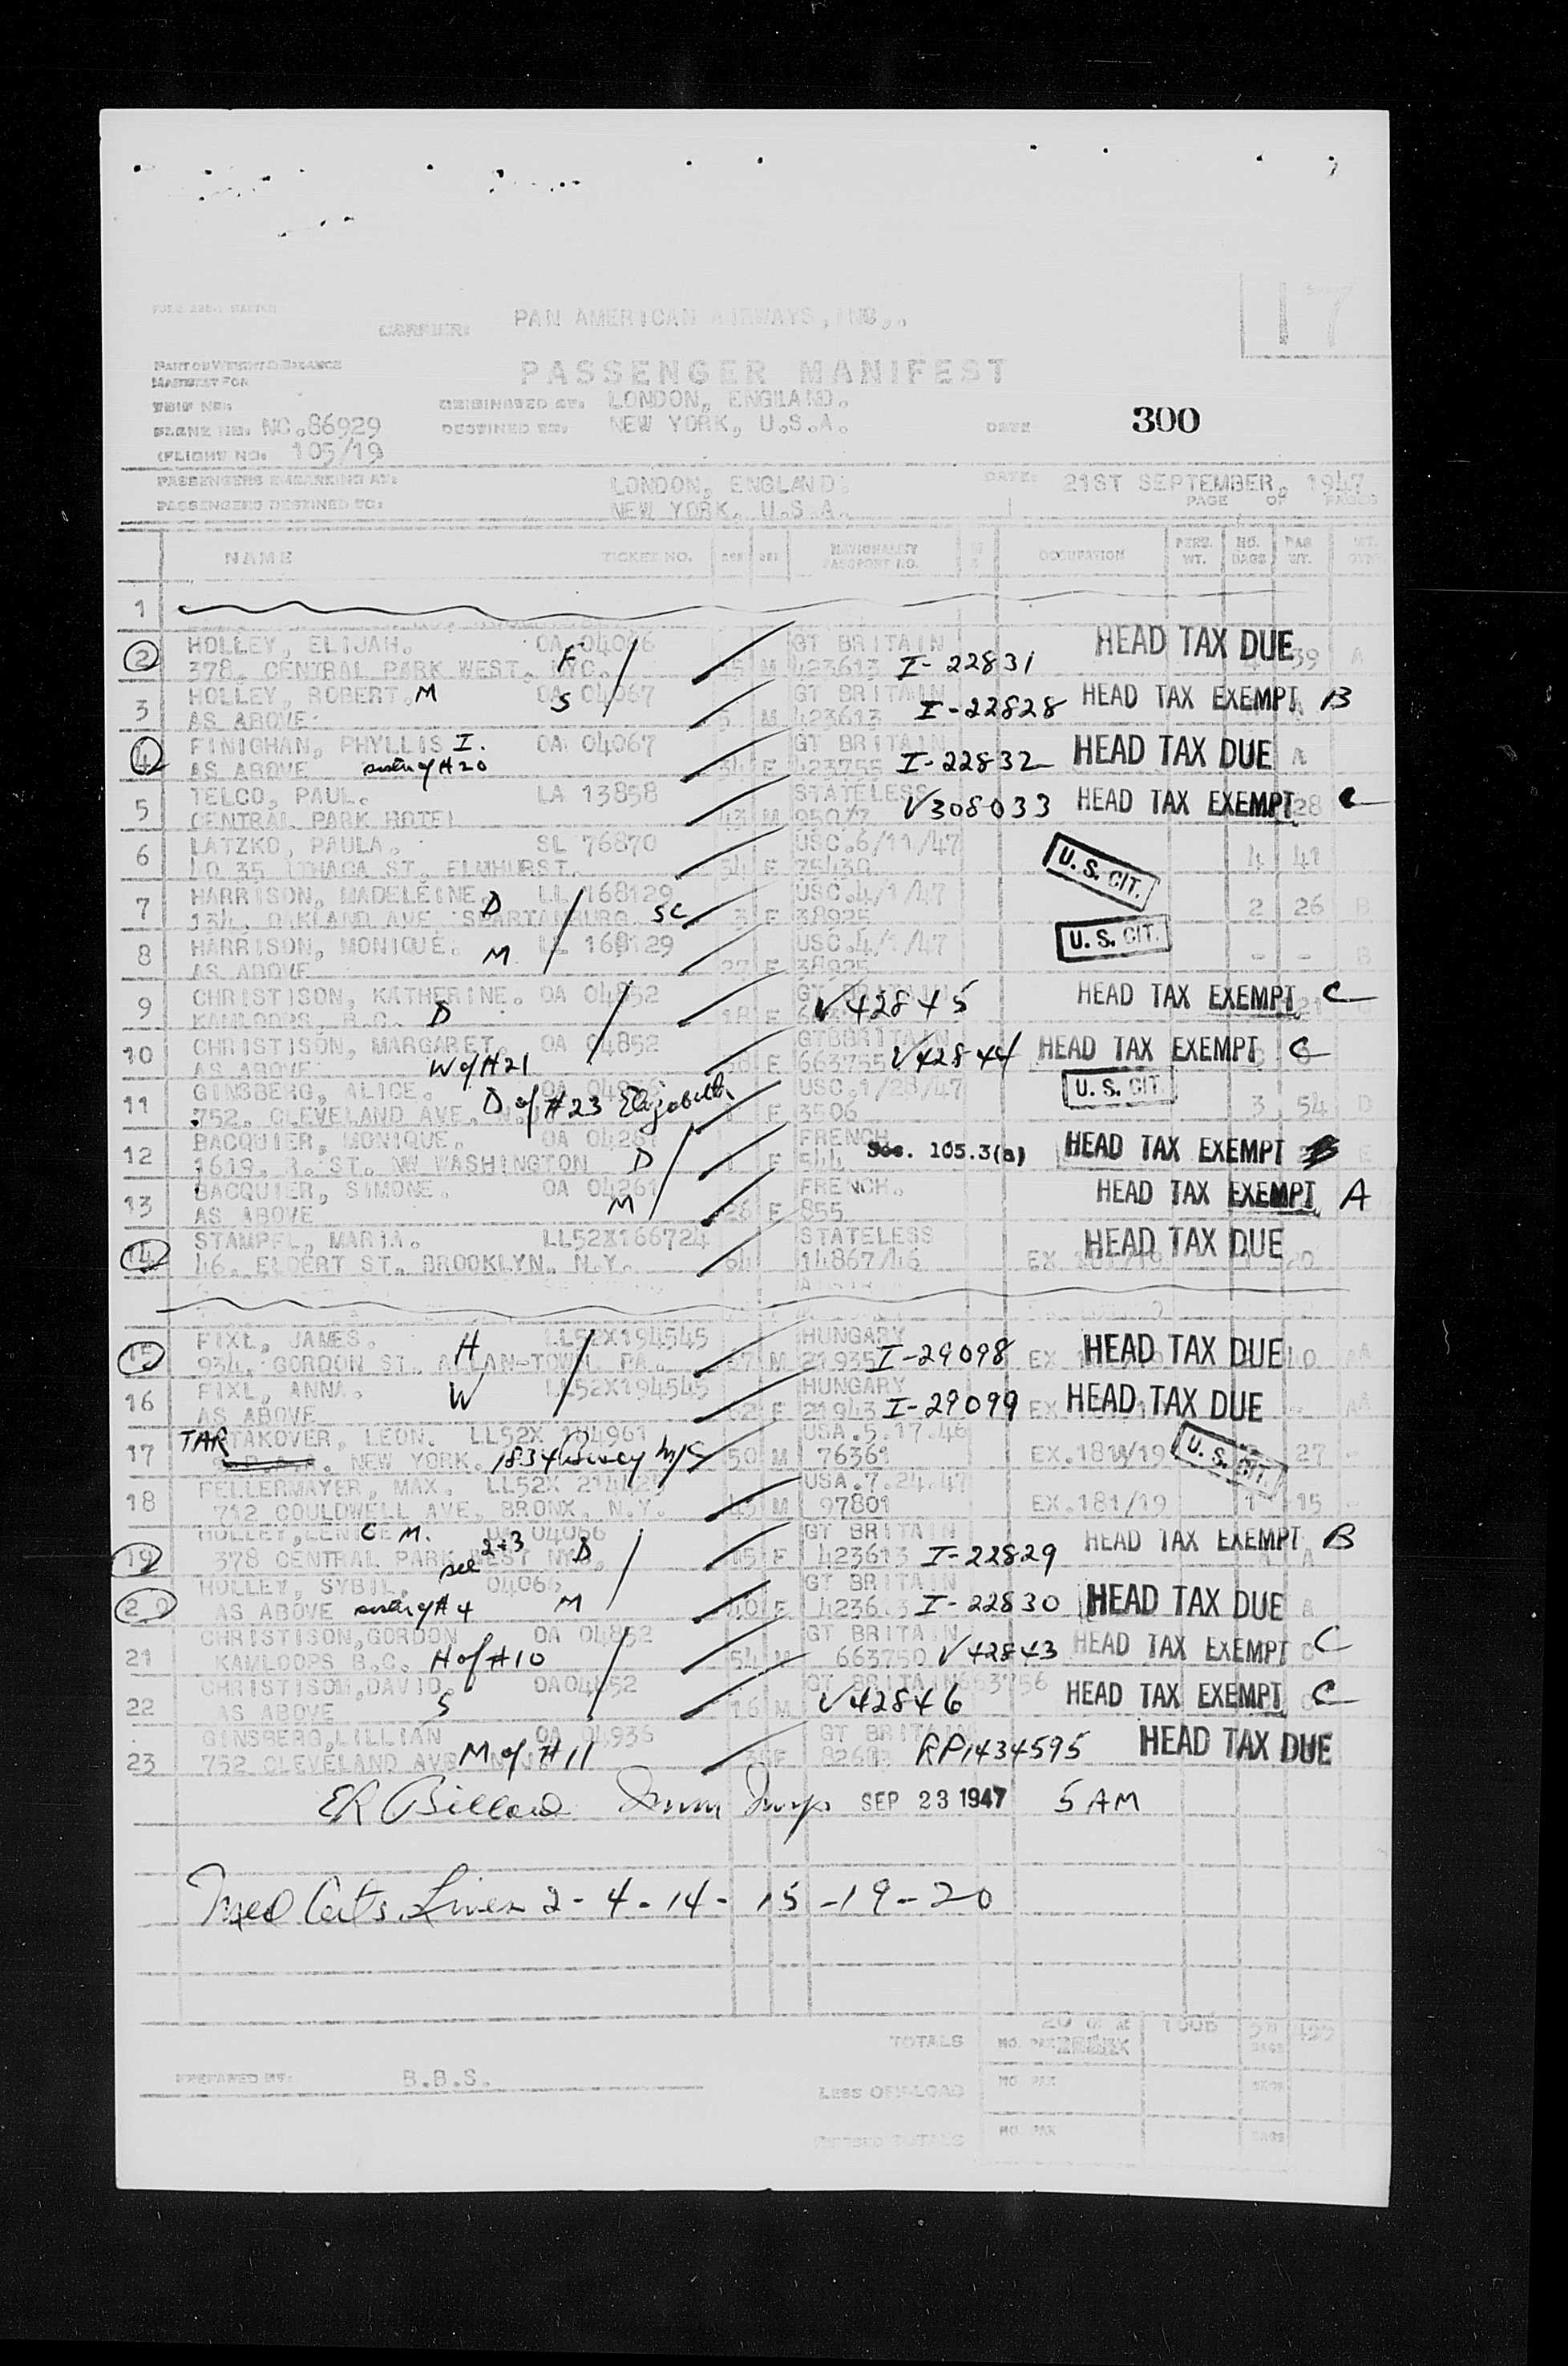 17
CARRIER: PAN AMERICAN AIRWAYS, INC,.
PART OF WEIGHT & BALANCE
MANIFEST FOR
PASSENGER MANIFEST
TRIP NO:
ORIGINATED AT: LONDON, ENGLAND.
PLANE NO: NC.86929
DESTINED TO: NEW YORK, U.S.A.
DATE
300
(FLIGHT NO: 105/19
PASSENGERS EMBARKING AT: LONDON, ENGLAND. DATE: 21ST SEPTEMBER, 1947
PASSENGERS DESTINED TO: NEW YORK, U.S.A. PAGE OF PAGES
NAME TICKET NO. NATIONALITY PASSPORT NO. OCCUPATION PERS. WT. NO. BAGS BAG WT.
1
2 HOLLEY, ELIJAH. OA 04066 GT BRITAIN HEAD TAX DUE 39 A
378. CENTRAL PARK WEST. NYC. F M 423613 I-22831
3 HOLLEY, ROBERT. M OA 04067 S GT BRITAIN HEAD TAX EXEMPT B
AS ABOVE M 423613 I-22828
4 FINIGHAN, PHYLLIS I. OA 04067 GT BRITAIN HEAD TAX DUE A
AS ABOVE sister of #20 34 F 423755 I-22832
5 TELCO, PAUL. LA 13858 STATELESS V308033 HEAD TAX EXEMPT 28 C
CENTRAL PARK HOTEL 43 M
6 LATZKO, PAULA. SL 76870 USC.6/11/47 U.S. CIT. 4 41
40 35 ITHACA ST. ELMHURST. 54 F 75430
7 HARRISON, MADELEINE. D LL 168129 USC.4/1/47 2 26 B
134. OAKLAND AVE SPARTANBURG SC 3 F 38925
8 HARRISON, MONIQUE. M LL 168129 USC.4/1/47 U.S. CIT. - - B
AS ABOVE 27 F 38925
9 CHRISTISON, KATHERINE. OA 04852 GT BRITAIN V42845 HEAD TAX EXEMPT C
KAMLOOPS, B.C. D 18 F
10 CHRISTISON, MARGARET. OA 04852 GTBBRITAIN HEAD TAX EXEMPT C
AS ABOVE W of #21 F 663755 V42844
11 GINSBERG, ALICE. USC.1/28/47 U.S. CIT. 3 54 D
752. CLEVELAND AVE. D of #23 Elizabeth F 3506
12 BACQUIER, MONIQUE. OA 04261 FRENCH Sec. 105.3(a) HEAD TAX EXEMPT B E
1619. R. ST. NW WASHINGTON D F 544
13 BACQUIER, SIMONE. OA 04261 FRENCH. HEAD TAX EXEMPT A
AS ABOVE M 26 F 855
14 STAMPFL, MARIA. LL52X166724 STATELESS HEAD TAX DUE
46. ELDERT ST. BROOKLYN. N.Y. 64 14867/46
15 PIXL, JAMES. H LL52X194545 HUNGARY HEAD TAX DUE
934. GORDON ST. ALLAN-TOWN PA. 67 M 21935 I-29098 AA
16 PIXL, ANNA. W LL52X194545 HUNGARY HEAD TAX DUE
AS ABOVE 62 F 21943 I-29099 AA
17 TARTAKOVER, LEON. LL52X 184961 USA.5.17.46 U.S. CIT.
NEW YORK. 1834 50 M 76361 EX.181/19 27
18 FELLERMAYER, MAX. LL52X USA.7.24.47
712 COULDWELL AVE, BRONX, N.Y. M 97801 EX.181/19 1 15
19 HOLLEY, C M. OA 04066 GT BRITAIN HEAD TAX EXEMPT B
378 CENTRAL PARK WEST NYC. see 2+3 D F 423613 I-22829
20 HOLLEY, SYBIL. 04066 GT BRITAIN HEAD TAX DUE
AS ABOVE sister of #4 M 40 F 423613 I-22830
21 CHRISTISON,GORDON OA 04852 GT BRITAIN HEAD TAX EXEMPT C
KAMLOOPS B.C. H of #10 54 M 663750 V42843
22 CHRISTISON,DAVID. OA04852 GT BRITAIN663756 HEAD TAX EXEMPT C
AS ABOVE S 16 M V42846
23 GINSBERG,LILLIAN OA 04936 GT BRITAIN HEAD TAX DUE
752 CLEVELAND AVE M of #11 F RP1434595
ER Billow Imm Insp SEP 23 1947 5 AM
Med Certs. Lines 2-4-14-15-19-20
TOTALS NO. PAX
PREPARED BY: B.B.S. BAGS
LESS OFF-LOAD NO. PAX
REVISED TOTALS NO. PAX BAGS